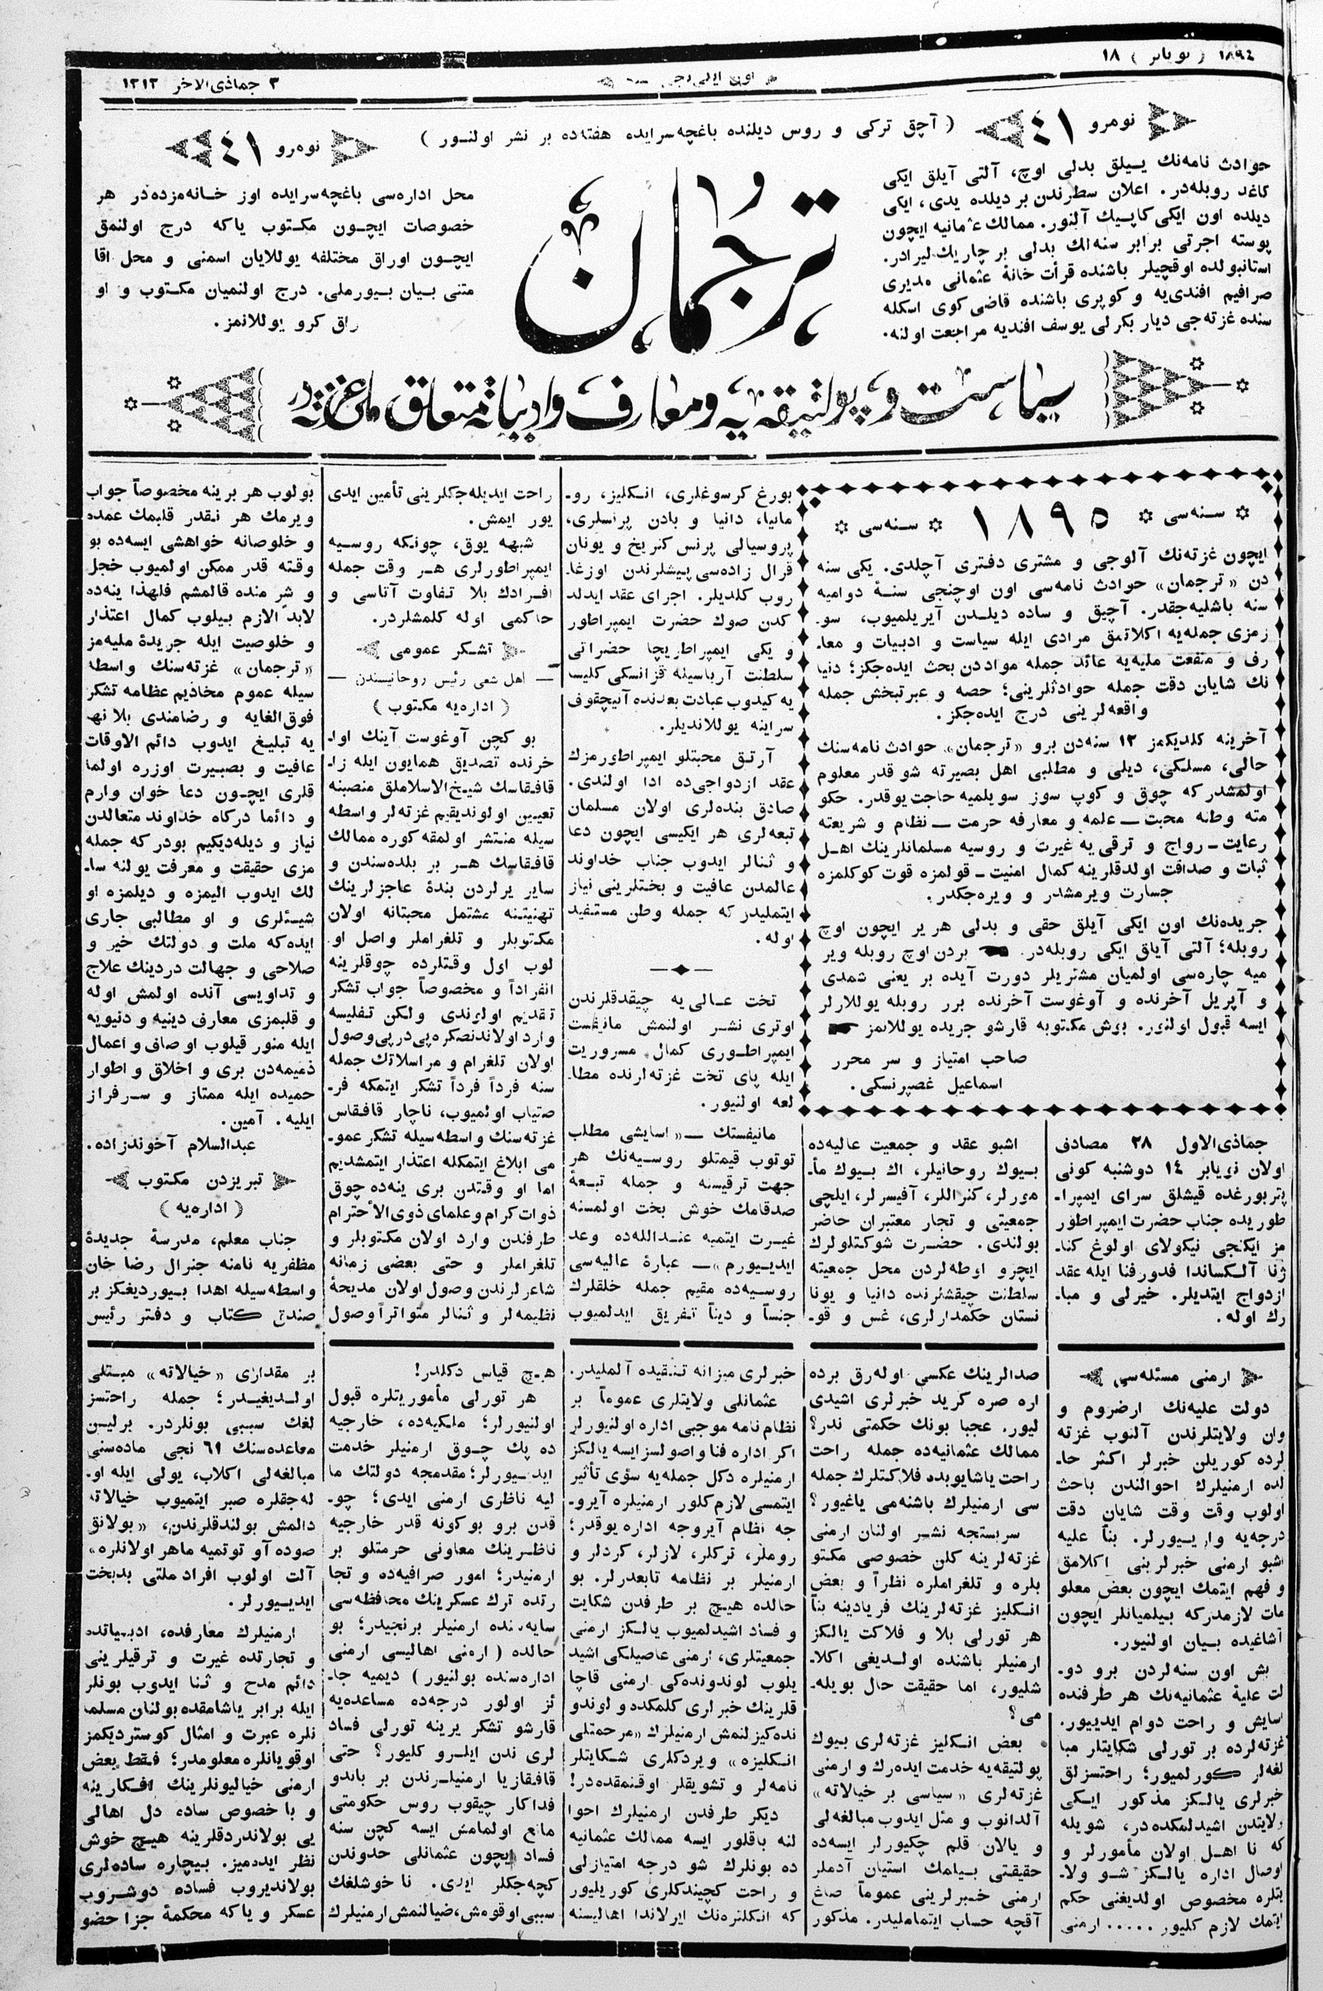 ١٨٩٤ ( نويابر ) ١٨
٣ جماذى الاخر ١٣١٢
نومرو ٤١
( آچق تركى و روس ديلنده باغچه‌سرايده هفته‌ده بر نشر اولنور )
نومرو ٤١
حوادث نامه‌نك ييلق بدلى اوچ، آلتى آيلق ايكى
كاغد روبله‌در. اعلان سطرندن بر ديلده يدى، ايكى
ديلده اون ايكى كاپيك آلنور. ممالك عثمانيه ايچون
پوسته اجرتى برابر سنه‌لك بدلى بر چاريك ليرادر.
استانبولده اوقچيلر باشنده قرأت خانهٔ عثمانى مديرى
صرافيم افندى‌يه و كوپرى باشنده قاضى كوى اسكله
سنده غزته‌جى ديار بكرلى يوسف افنديه مراجعت اولنه.
ترجمان
محل اداره‌سى باغچه‌سرايده اوز خانه‌مزده‌در هر
خصوصات ايچون مكتوب ياكه درج اولنمق
ايچون اوراق مختلفه يوللايان اسمنى و محل اقا
متنى بيان بيورملى. درج اولنميان مكتوب و او
راق كرو يوللانمز.
سياست و پولتيقه‌يه و معارف و ادبياته متعلق ملى غزته‌در
سنه‌سى ١٨٩٥ سنه‌سى
ايچون غزته‌نك آلوجى و مشترى دفترى آچلدى. يكى سنه
دن «ترجمان» حوادث نامه‌سى اون اوچنجى سنهٔ دواميه
سنه باشليه‌جقدر. آچيق و ساده ديلدن آيريلميوب، سو-
زمزى جمله‌يه اكلاتمق مرادى ايله سياست و ادبيات و معا-
رف و منفعت مليه‌يه عائد جمله مواددن بحث ايده‌جكز؛ دنيا
نك شايان دقت جمله حوادثلرينى؛ حصه و عبرتبخش جمله
واقعه‌لرينى درج ايده‌جكز.
آخرينه كلديكمز ١٢ سنه‌دن برو «ترجمان» حوادث نامه‌سنك
حالى، مسلكى، ديلى و مطلبى اهل بصيرته شو قدر معلوم
اولمشدر كه چوق و كوپ سوز سويلميه حاجت يوقدر. حكو
مته وطنه محبت – علمه و معارفه حرمت – نظام و شريعته
رعايت – رواج و ترقى‌يه غيرت و روسيه مسلمانلرينك اهل
ثبات و صداقت اولدقلرينه كمال امنيت – قولمزه قوت كوكلمزه
جسارت ويرمشدر و ويره‌جكدر.
جريده‌نك اون ايكى آيلق حقى و بدلى هر ير ايچون اوچ
روبله؛ آلتى آيلق ايكى روبله‌در. بردن اوچ روبله وير
ميه چاره‌سى اولميان مشتريلر دورت آيده بر يعنى شمدى
و آپريل آخرنده و آوغوست آخرنده برر روبله يوللارلر
ايسه قبول اولنور. بوش مكتوبه قارشو جريده يوللانمز
صاحب امتياز و سر محرر
اسماعيل غصپرنسكى.
جماذى الاول ٢٨ مصادفى
اولان نويابر ١٤ دوشنبه كونى
پتربورغده قيشلق سراى ايمپرا-
طوريده جناب حضرت ايمپراطور
مز ايكنجى نيكولاى اولوغ كنا-
ژنا آلكساندا فدورفنا ايله عقد
ازدواج ايتديلر. خيرلى و مبا-
رك اوله.
اشبو عقد و جمعيت عاليه‌ده
بيوك روحانيلر، اك بيوك مأ-
مورلر، كنراللر، آفيسرلر، ايلچى
جمعيتى و تجار معتبران حاضر
بولندى. حضرت شوكتلولرك
ايچرو اوطه‌لردن محل جمعيته
سلطنت چيقشلرنده دانيا و يونا
نستان حكمدارلرى، غس و قو-
بورغ كرسوغلرى، انكليز، رو-
مانيا، دانيا و بادن پرنسلرى،
پروسيالى پرنس كنريخ و يونان
قرال زاده‌سى پيشلرندن اوزغا-
روب كلديلر. اجراى عقد ايدلد
كدن صوك حضرت ايمپراطور
و يكى ايمپراطريچا حضراتى
سلطنت آرباسيله قزانسكى كليسا
يه كيدوب عبادت بعدنده آنيچقوف
سراينه يوللانديلر.
آرتق محبتلو ايمپراطورمزك
عقد ازدواجى‌ده ادا اولندى.
صادق بنده‌لرى اولان مسلمان
تبعه‌لرى هر ايكيسى ايچون دعا
و ثنالر ايدوب جناب خداوند
عالمدن عافيت و بختلرينى نياز
ايتمليدر كه جمله وطن مستفيد
اوله.
تخت عالى‌يه چيقدقلرندن
اوترى نشر اولنمش مانيفست
ايمپراطورى كمال مسروريت
ايله پاى تخت غزته‌لرنده مطا-
لعه اولنيور.
مانيفستك – «اسايشى مطلب
توتوب قيمتلو روسيه‌نك هر
جهت ترقيسنه و جمله تبعهٔ
صدقامك خوش بخت اولمسنه
غيرت ايتميه عندالله‌ده وعد
ايدييورم» – عبارهٔ عاليه‌سى
روسيه‌ده مقيم جمله خلقلرك
جنساً و ديناً تفريق ايدلميوب
راحت ايديله‌جكلرينى تأمين ايدى
يور ايمش.
شبهه يوق، چونكه روسيه
ايمپراطورلرى هر وقت جمله
افرادك بلا تفاوت آتاسى و
حاكمى اوله كلمشلردر.
تشكر عمومى
– اهل شعى رئيس روحانيسندن –
( اداره‌يه مكتوب )
بو كچن آوغوست آينك اوا
خرنده تصديق همايون ايله زا-
قافقاسك شيخ الاسلاملق منصبنه
تعيين اولونديقم غزته‌لر واسطه
سيله منتشر اولمقه كوره ممالك
قافقاسك هر بر بلده‌سندن و
ساير يرلردن بندهٔ عاجزلرينك
تهنيتنه مشتمل محبتانه اولان
مكتوبلر و تلغراملر واصل او
لوب اول وقتلرده چوقلرينه
انفراداً و مخصوصاً جواب تشكر
تقديم اولوندى ولكن تفليسه
وارد اولاندنصكره پى‌درپى وصول
اولان تلغرام و مراسلاتك جمله
سنه فرداً فرداً تشكر ايتمكه فر-
صتياب اولميوب، ناچار قافقاس
غزته‌سنك واسطه‌سيله تشكر عمو-
مى ابلاغ ايتمكله اعتذار ايتمشديم
اما او وقتدن برى ينه‌ده چوق
ذوات كرام و علماى ذوى الاحترام
طرفندن وارد اولان مكتوبلر و
تلغراملر و حتى بعضى زمانه
شاعرلرندن وصول اولان مديحهٔ
نظيمه‌لر و ثنالر متواتراً وصول
بولوب هر برينه مخصوصاً جواب
ويرمك هر نقدر قلبمك عمده
و خلوصانه خواهشى ايسه‌ده بو
وقته قدر ممكن اولميوب خجل
و شرمنده قالمشم فلهذا ينه‌ده
لابد الازم بيلوب كمال اعتذار
و خلوصيت ايله جريدهٔ مليه‌مز
«ترجمان» غزته‌سنك واسطه
سيله عموم مخاديم عظامه تشكر
فوق الغايه و رضامندى بلا نها
يه تبليغ ايدوب دائم الاوقات
عافيت و بصيرت اوزره اولما
قلرى ايچون دعا خوان وارم
و دائما درگاه خداوند متعالدن
نياز و ديله‌ديكيم بودر كه جمله
مزى حقيقت و معرفت يولنه سا-
لك ايدوب اليمزه و ديلمزه او
شيئلرى و او مطالبى جارى
ايده‌كه ملت و دولتك خير و
صلاحى و جهالت دردينك علاج
و تداويسى آنده اولمش اوله
و قلبمزى معارف دينيه و دنيويه
ايله منور قيلوب اوصافى و اعمال
ذميمه‌دن برى و اخلاق و اطوار
حميده ايله ممتاز و سرفراز
ايليه. آمين.
عبدالسلام آخوندزاده.
تبريزدن مكتوب
( اداره‌يه )
جناب معلم، مدرسهٔ جديدهٔ
مظفريه نامنه جنرال رضا خان
واسطه‌سيله اهدا بيورديغكز بر
صندق كتاب و دفتر رئيس
ارمنى مسئله‌سى
دولت عليه‌نك ارضروم و
وان ولايتلرندن آلنوب غزته
لرده كوريلن خبرلر اكثر حا-
لده ارمنيلرك احوالندن باحث
اولوب وقت وقت شايان دقت
درجه‌يه وارييورلر. بناً عليه
اشبو ارمنى خبرلرينى اكلامق
و فهم ايتمك ايچون بعض معلو
مات لازمدركه بيلميانلر ايچون
آشاغيده بيان اولنيور.
بش اون سنه‌لردن برو دو-
لت عليهٔ عثمانيه‌نك هر طرفنده
اسايش و راحت دوام ايدييور.
غزته‌لرده بر تورلى شكايتلر مبا
لغه‌لر كورلميور؛ راحتسزلق
خبرلرى يالكز مذكور ايكى
ولايتدن اشيدلمكده‌در، شويله
كه نا اهل اولان مأمورلر و
اوصال اداره يالكز شو ولا-
يتلره مخصوص اولديغنى حكم
ايتمك لازم كليور ..... ارمنى
صدالرينك عكسى اوله‌رق برده
اره صره كريد خبرلرى اشيدى
ليور. عجبا بونك حكمتى ندر؟
ممالك عثمانيه‌ده جمله راحت
راحت ياشايوبده فلاكتلرك جمله
سى ارمنيلرك باشنه‌مى ياغيور؟
سربستجه نشر اولنان ارمنى
غزته‌لرينه كلن خصوصى مكتو
بلره و تلغراملره نظراً و بعض
انكليز غزته‌لرينك فريادينه بناً
هر تورلى بلا و فلاكت يالكز
ارمنيلر باشنده اولديغى اكلا-
شليور، اما حقيقت حال بويله-
مى؟
بعض انكليز غزته‌لرى بيوك
پولتيقه‌يه خدمت ايده‌رك و ارمنى
غزته‌لرى «سياسى بر خيالاته»
آلدانوب و مثل ايدوب مبالغه‌لى
و يالان قلم چكيورلر ايسه‌ده
حقيقتى بيلمك استيان آدملر
ارمنى خبرلرينى عموماً صاغ
آقچه حساب ايتماملیدر. مذكور
خبرلرى ميزانه تنقيده آلمليدر.
عثمانلى ولايتلرى عموماً بر
نظام نامه موجبى اداره اولنيورلر
اكر اداره فنا و اصولسز ايسه يالكز
ارمنيلره دكل جمله‌يه سوٴى تأثير
ايتمسى لازم كلور ارمنيلره آيرو-
جه نظام آيروجه اداره يوقدر؛
روملر، تركلر، لازلر، كردلر و
ارمنيلر بر نظامه تابعدرلر. بو
حالده هيچ بر طرفدن شكايت
و فساد اشيدلميوب يالكز ارمنى
جمعيتلرى، ارمنى عاصيلكى اشيد
يلوب لوندونده‌كى ارمنى قاچا
قلرينك خبرلرى كلمكده و لوندو
نده كيزلنمش ارمنيلرك «مرحمتلى
انكليزه» ويردكلرى شكايتلر
نامه‌لر و تشويقلر اوقنمقده‌در!
ديكر طرفدن ارمنيلرك احوا
لنه باقلور ايسه ممالك عثمانيه
ده بونلرك شو درجه امتيازلى
و راحت كچيندكلرى كوريليور
كه انكلتره‌نك ايرلاندا اهاليسنه
هيچ قياس دكلدر!
هر تورلى مأموريتلره قبول
اولنيورلر؛ ملكيه‌ده، خارجيه
ده پك چوق ارمنيلر خدمت
ايدييورلر؛ مقدمجه دولتك ما
ليه ناظرى ارمنى ايدى؛ چو-
قدن برو بو كونه قدر خارجيه
ناظرينك معاونى حرمتلو بر
ارمنيدر؛ امور صرافيه‌ده و تجا
رتده ترك عسكرينك محافظه‌سى
سايه‌سنده ارمنيلر برنجيدر؛ بو
حالده ( ارمنى اهاليسى ارمنى
اداره‌سنده بولنيور ) ديميه جا-
ئز اولور درجه‌ده مساعده‌يه
قارشو تشكر يرينه تورلى فساد
لرى ندن ايلرو كليور؟ حتى
قافقازيا ارمنيلرندن بر باندو
فداكار چيقوب روس حكومتى
مانع اولمامش ايسه كچن سنه
فساد ايچون عثمانلى حدوندن
كچه‌جكلر ايدى. نا خوشلغك
سببى اوقومش، ضيالنمش ارمنيلرك
بر مقدارى «خيالاته» مبتلى
اولديغيدر؛ جمله راحتسز
لغك سببى بونلردر. برلين
معاهده‌سنك ٦١ نجى ماده‌سنى
مبالغه‌لى اكلاب، يولى ايله او-
له‌جقلره صبر ايتميوب خيالاته
دالمش بولندقلرندن، «بولانق
صوده آو توتميه ماهر اولانلره»
آلت اولوب افراد ملتى بدبخت
ايدييورلر.
ارمنيلرك معارفده، ادبياتده
و تجارتده غيرت و ترقيلرينى
دائم مدح و ثنا ايدوب بونلر
ايله برابر ياشامقده بولنان مسلما
نلره عبرت و امثال كوستردیكمز
اوقويانلره معلومدر؛ فقط بعض
ارمنى خياليونلرينك افكارينه
و با خصوص ساده دل اهالى
يى بولاندردقلرينه هيچ خوش
نظر ايده‌ميز. بيچاره ساده‌لرى
بولانديروب فساده دوشروب
عسكر و ياكه محكمهٔ جزا حضو